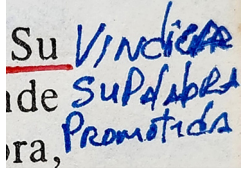 Su VINDICAR
nde SUPALABRA
ora, PROMETIDA